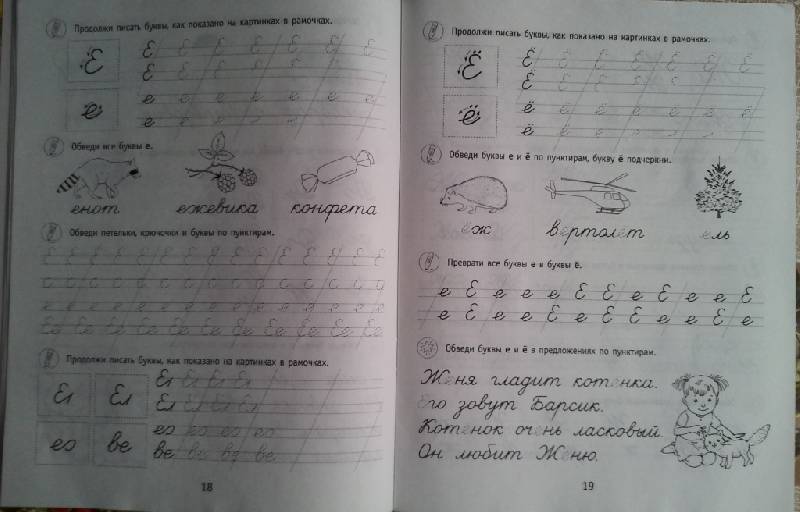 Продолжи писать буквы, как показано на картинках в рамочках.
Е Е Е Е Е Е Е Е
Е Е Е Е Е
е е е е е е е е
е е е
Обведи все буквы е.
енот ежевика конфета
Обведи петельки, крючочки и буквы по пунктирам.
Продолжи писать буквы, как показано на картинках в рамочках.
Ег Ел
ео ве
18
Продолжи писать буквы, как показано на картинках в рамочках.
Ё Ё
ё ё
Обведи буквы е и ё по пунктирам, букву ё подчеркни.
еж вертолет ель
Преврати все буквы е в буквы ё.
е Е е е е Е Е е Е е е Е
е Е е е Е Е Е е е Е е
Обведи буквы е и ё в предложениях по пунктирам.
Женя гладит котенка.
Его зовут Барсик.
Котенок очень ласковый.
Он любит Женю.
19